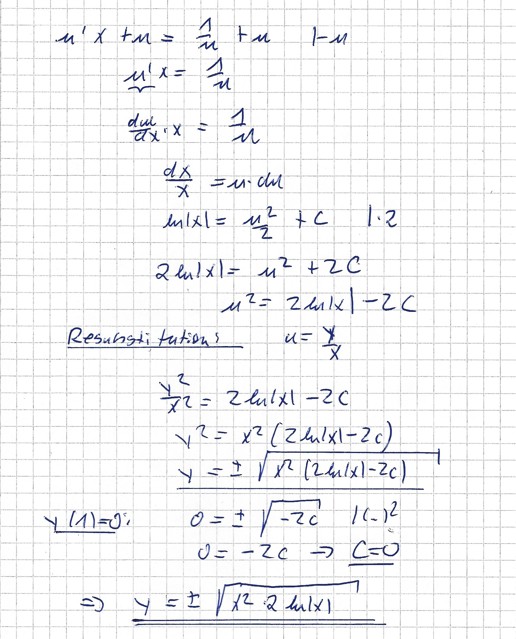 u'x + u = 1/u + u |-u
u'x = 1/u
du/dx · x = 1/u
dx/x = u·du
ln|x| = u²/2 + C |·2
2ln|x| = u² + 2C
u² = 2ln|x| - 2C
Resubstitution: u = y/x
y²/x² = 2ln|x| - 2C
y² = x²(2ln|x| - 2C)
y = ± √(x²(2ln|x| - 2C))
y(1)=0: 0 = ± √(-2C) |(-)²
0 = -2C → C=0
⇒ y = ± √(x²·2ln|x|)